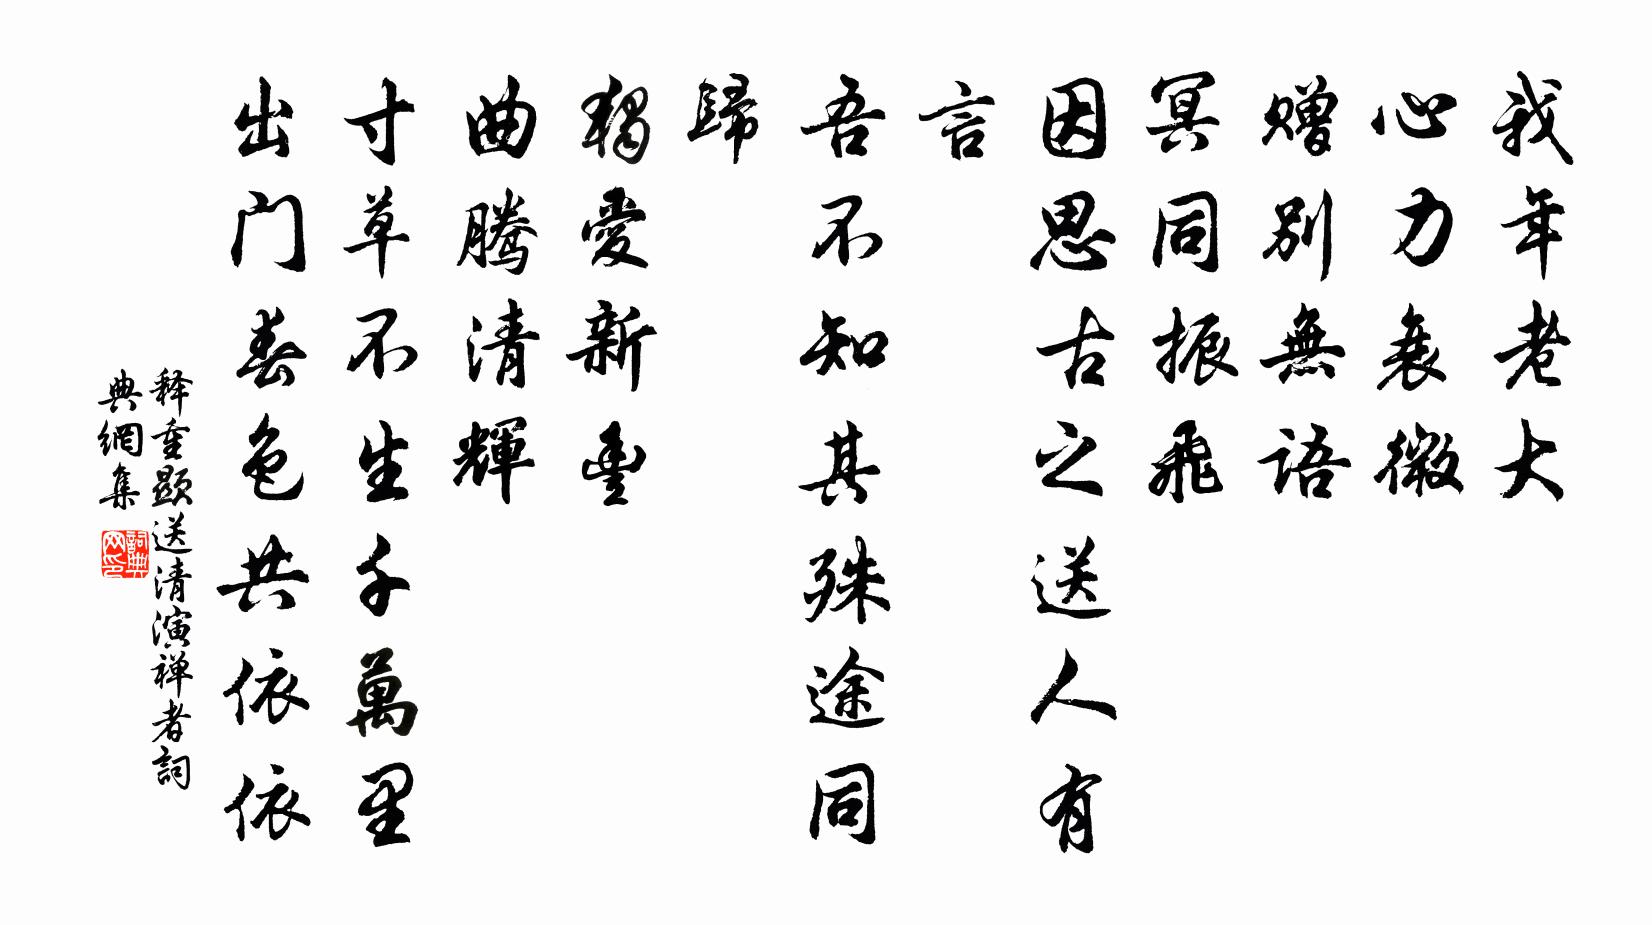 我年老大
心力衰微
赠别無語
冥同振飛
因思古之送人有
言
吾不知其殊途同
歸
獨愛新豐
曲騰清輝
寸草不生千萬里
出门春色共依依
释重顯送清演禅者詞
典網集
詞典
网印